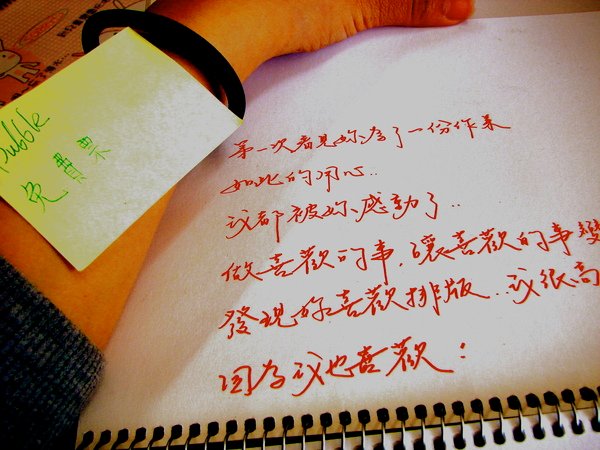 bubble
免費票
第一次看見妳為了一份作業
如此的用心..
我都被妳感動了..
做喜歡的事，讓喜歡的事變
發現妳喜歡排版..我很高
因為我也喜歡！